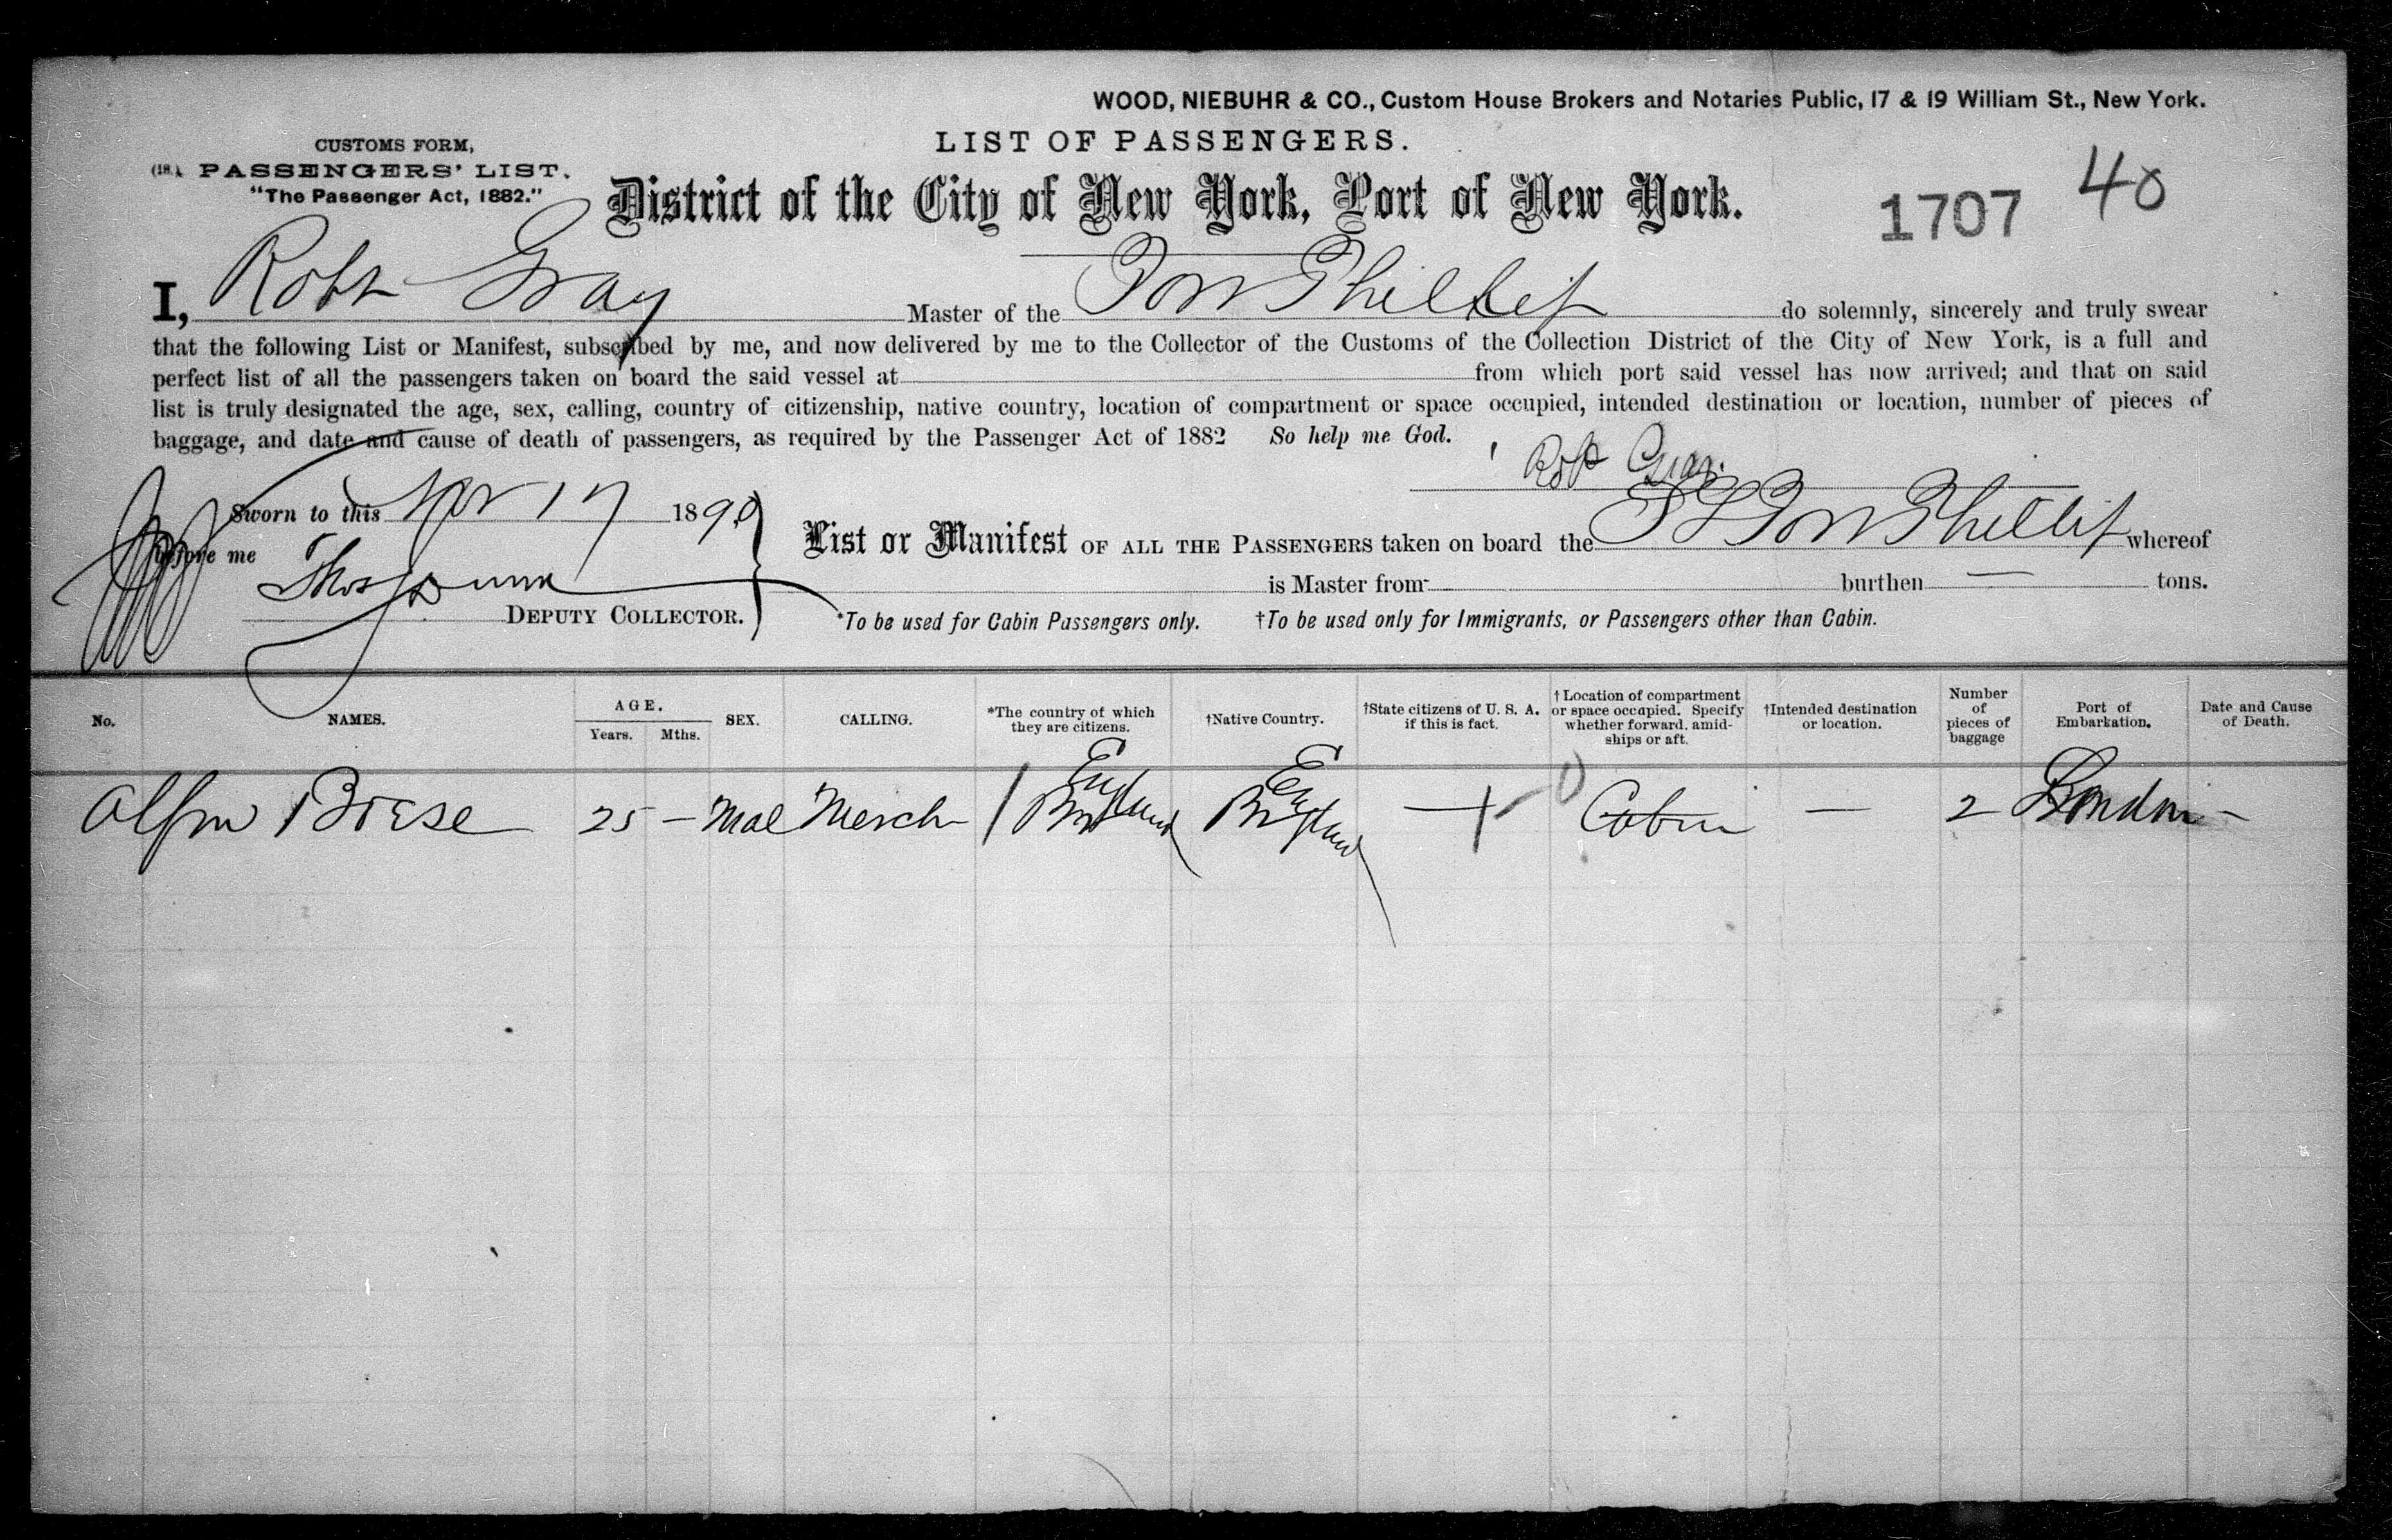 WOOD, NIEBUHR & CO., Custom House Brokers and Notaries Public, 17 & 19 William St., New York.
CUSTOMS FORM,
PASSENGERS' LIST.
"The Passenger Act, 1882."
LIST OF PASSENGERS.
District of the City of New York, Port of New York.
1707 40
I, Robt Gray Master of the do solemnly, sincerely and truly swear
that the following List or Manifest, subscribed by me, and now delivered by me to the Collector of the Customs of the Collection District of the City of New York, is a full and
perfect list of all the passengers taken on board the said vessel at from which port said vessel has now arrived; and that on said
list is truly designated the age, sex, calling, country of citizenship, native country, location of compartment or space occupied, intended destination or location, number of pieces of
baggage, and date and cause of death of passengers, as required by the Passenger Act of 1882 So help me God.
Robt Gray
Sworn to this Nov 17 1890
before me
Thos Dunn
DEPUTY COLLECTOR.
List or Manifest OF ALL THE PASSENGERS taken on board the whereof
is Master from burthen — tons.
*To be used for Cabin Passengers only. †To be used only for Immigrants, or Passengers other than Cabin.
No.
NAMES.
AGE.
Years. Mths.
SEX.
CALLING.
*The country of which
they are citizens.
†Native Country.
†State citizens of U. S. A.
if this is fact.
†Location of compartment
or space occupied. Specify
whether forward, amid-
ships or aft.
†Intended destination
or location.
Number
of
pieces of
baggage
Port of
Embarkation.
Date and Cause
of Death.
25 — Mal Merch England England — Cabin — 2 London —